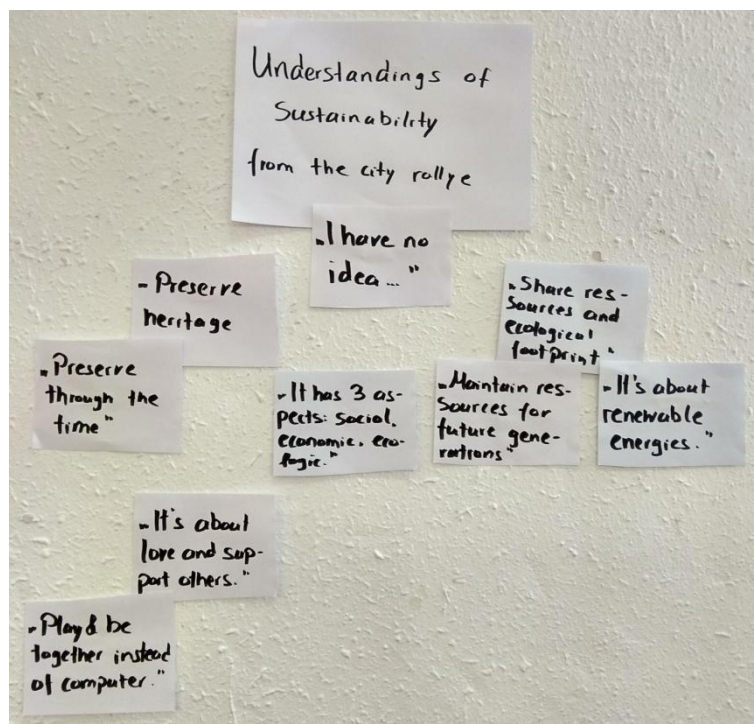 Understandings of
Sustainability
from the city rallye
„I have no
idea..."
- Preserve
heritage
„Share res-
sources and
ecological
footprint"
„Preserve
through the
time"
„It has 3 as-
pects: social,
economic, eco-
logic."
„Maintain res-
sources for
future gene-
rations"
„It's about
renewable
energies."
„It's about
love and sup-
port others."
„Play & be
together instead
of computer."